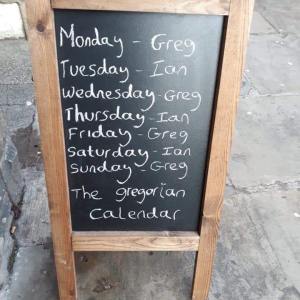 Monday - Greg
Tuesday - Ian
Wednesday - Greg
Thursday - Ian
Friday - Greg
Saturday - Ian
Sunday - Greg
The gregorian
Calendar